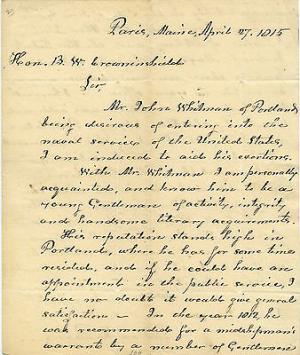 Paris, Maine, April 27, 1815
Hon. B. W. Crowninshield
Sir,
Mr. John Whitman of Portland
being desirous of entering into the
naval service of the United States,
I am induced to aid his exertions.
With Mr. Whitman I am personally
acquainted, and know him to be a
young Gentleman of activity, integrity
and handsome literary acquirements.
His reputation stands high in
Portland, where he has for some time
resided, and if he could have an
appointment in the public service, I
have no doubt it would give general
satisfaction – In the year 1812 he
was recommended for a midshipman's
warrant by a number of Gentlemen